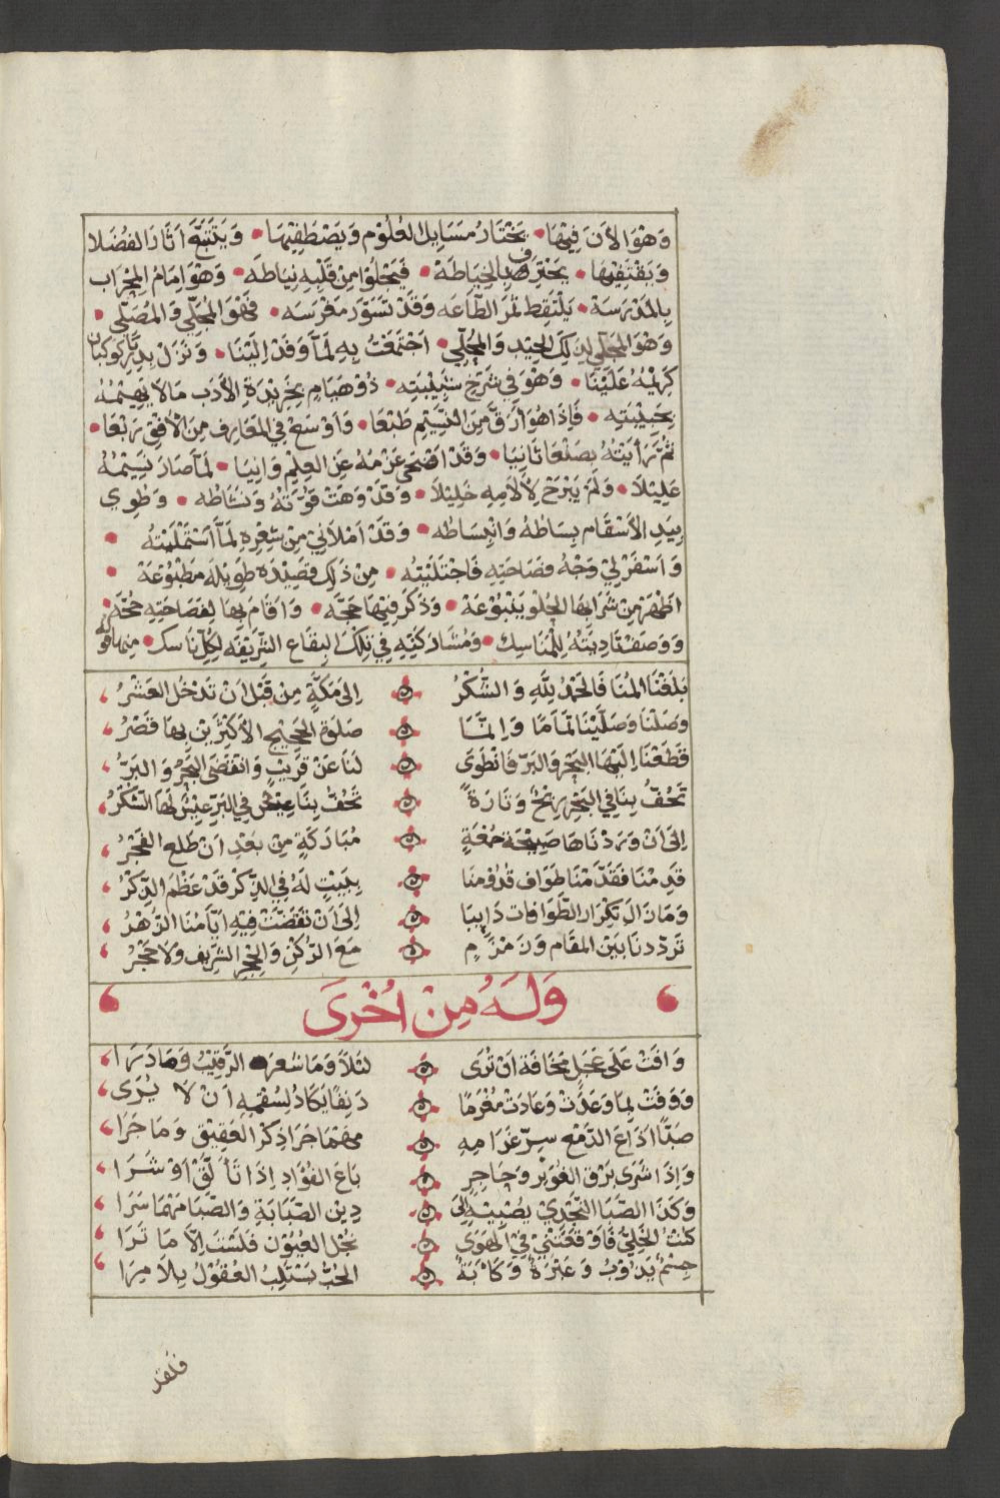 وَهْوَ الأَنَ فِيْهَا • يَخْتَارُ مَسَايِلَ العُلُوْمِ وَيَصْطَفِيْهَا • وَيَتَتَبَّعُ آثَارَ الفُضَلا
وَيَقْتَفِيْهَا • يَحْتَرِفُ بِالخِيَاطَهْ • فَيَجْلُوْا مِنْ قَلْبِهِ نِيَاطَهْ • وَهْوَ اِمَامُ المِحْرَاب
بِالمَدْرَسَهْ • يَلْتَقِط ثَمَرَ الطَّاعَه وَقَدْ تَسَوَّرَ مَغْرَسَه • فَهْوَ المُجَلِّي وَالمُصَلِّي •
وَهْوَ المُحَلِّي لِذَلِكَ الجِيْدِ وَالمُجَلِّي • اجْتَمَعْتُ بِهِ لَمَّا وَفَدَ اِلَيْنَا • وَنَزَلَ بِدِيَارِ كَوْكَبَان
كَرِيْمُهُ عَلَيْنَا • وَهْوَ فِي شَرْخِ شَبِيْبَتِه • ذُوْ هَيَامٍ بِخَرِيْدَةِ الأَدَب مَالا يَهِيْمُهُ
بِحَبِيْبَتِه • فَاِذَا هُوَ أَرَقَّ مِنَ النَّسِيْمِ طَبْعَا • وَأَوْسَعْ فِي المَعَارِف مِنَ الأُفْقِ رَبْعَا •
ثُمَّ رَأَيْتُهُ بِصَنْعَا ثَانِيَا • وَقَدْ اضْحَى عَزْمُهُ عَنِ العِلْمِ وَانِيَا • لَمَّا صَارَ نَسِيْمُهُ
عَلِيْلاَ • وَلَمْ يَبْرَحْ لِآلاَمِهِ خَلِيْلاَ • وَقَدْ وَهَتْ قُوَّتُهُ وَنَشَاطُه • وَطُوِي
بِيَدِ الأَسْقَامِ بِسَاطُهُ وَانْبِسَاطُه • وَقَدْ اَمْلاَنِيْ مِنْ شِعْرِهِ لَمَّا اسْتَمْلَيْتُهُ •
وَاَسْفَرَ لِيْ وَجْهُ فَصَاحَتِهِ فَاجْتَلَيْتُه • مِنْ ذَلِكَ قَصِيْدَه طَوِيْلَه مَطْبُوْعَهْ •
اَظْهَرَ مِنْ شَرَابِهَا الحُلْوِ يَنْبُوْعَهْ • وَذَكَرَ فِيْهَا حَجَّه • وَاَقَامَ بِهَا لِفَصَاحَتِهِ حُجَّه •
وَوَصَفَ تَادِيَتَهُ لِلْمَنَاسِك • وَمُشَارَكَتِهِ فِي تِلْكَ البِقَاع الشَّرِيْفَه لِكُلِّ نَاسك • مِنها قَوْلُه
بَلَغْنَا المُنَا فَالحَمْدُ لِلَّهِ وَالشُّكْرُ ۞ اِلَى مَكَّةٍ مِنْ قَبْلِ اَنْ تَدْخُلَ العَشْرُ
وَصَلْنَا وَصَلَّيْنَا تَمَامًا وَاِنَّمَا ۞ صَلَوةُ الحَجِيْجِ الأَكْثَرِيْنَ بِهَا قَصْرُ
قَطَعْنَا اِلَيْهَا البَحْرَ وَالبَرَّ فَانْطَوَى ۞ لَنَا عَنْ قَرِيْبٍ وَانْقَضَى البَحْرُ وَالبَرُّ
تَحُفُّ بِنَا فِي البَحْرِ رِيْحٌ وَتَارَةً ۞ تَحُفُّ بِنَا عِيْسٌ فِي البَرِّ عِيْسٌ لَهَا الشُّكْرُ
اِلَى اَنْ وَرَدْنَاهَا صَبِيْحَة جُمْعَةٍ ۞ مُبَارَكَةٍ مِنْ بَعْدِ اَنْ طَلَعَ الفَجْرُ
قَدِمْنَا فَقَدَّمْنَا طَوَاف قُدُوْمِنَا ۞ بِبَيْتٍ لَهُ فِي الذِّكْرِ قَدْ عَظُمَ الذِّكْرُ
وَمَا زَالَ تَكْرَارُ الطَّوَافَات دَايِبَا ۞ اِلَى اَنْ تَقَضَّتْ فِيْهِ اَيَّامُنَا الزُّهْرُ
تَرَدَّدنَا بَيْنَ المَقَام وَزَمْزَمٍ ۞ مَعَ الرُّكْنِ وَالحِجْرِ الشَّرِيْف وَلاَ حَجْرُ
وَلَهُ مِنْ اُخْرَى
وَافَتْ عَلَى عَجَلٍ مَخَافَة اَنْ تُرَى ۞ لَيْلاً وَمَا شَعَرَ الرَّقِيْبُ وَمَا دَرَا
وَوَفَتْ لِمَا وَعَدَتْ وَعَادَتْ مُغْرَمًا ۞ دَنِفًا يَكَادُ لِسُقْمِهِ اَنْ لاَ يُرَى
صَبًّا اَذَاعَ الدَّمْعَ سِرّ غَرَامِهِ ۞ مَهْمَا جَرَا ذِكْرُ العَقِيْقِ وَمَا جَرَا
وَاِذَا شَرَى بَرْق الغُوَيْر وَحَاجِرٍ ۞ بَاعَ الفُؤَادِ اِذَا تَأَلَّقَ اَوْ شَرَا
وَكَذَا الصَّبَا النَّجْدِيّ يُصْبِيْهِ اِلَى ۞ دِيْنِ الصَّبَابَةِ وَالصَّبَا مَهْمَا سَرَا
كُنْتُ الخَلِيَّ فَاَوْقَعَتْنِيْ فِيْ الهَوَى ۞ نُجْلُ العُيُوْنِ فَلَسْتُ اِلاَّ مَا تَرَا
جِسْمٌ يَذُوْبُ وَعَبْرَةٌ وَكَآبَةٌ ۞ الحُبُّ يَسْتَلِبُ العُقُوْلَ بِلاَ مِرَا
فلقد